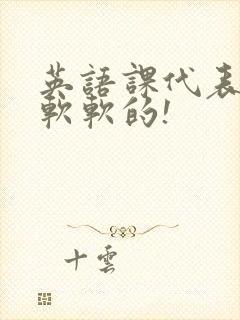 英語課代表
軟軟的!
十雲